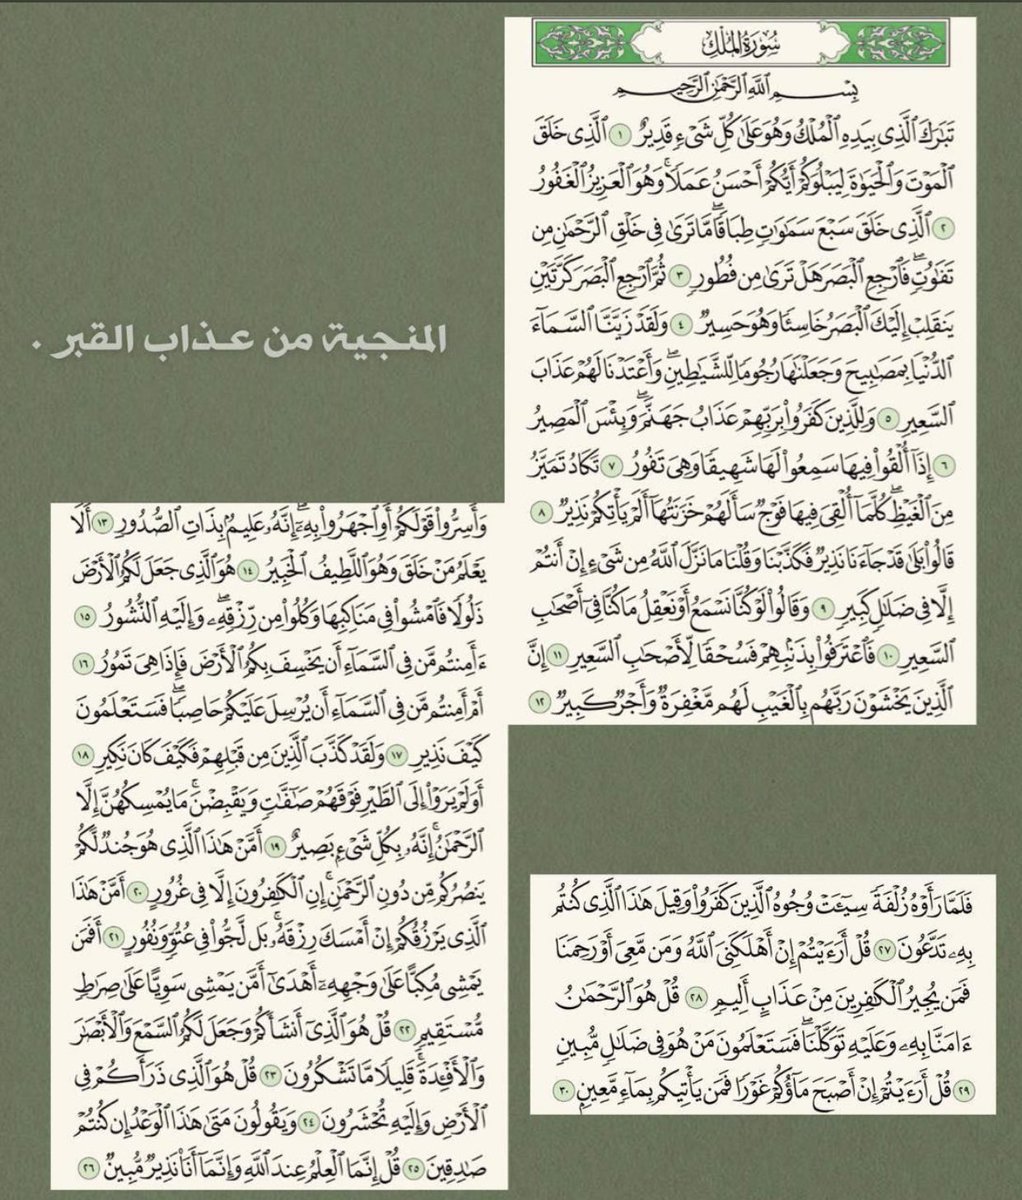 سُورَةُ المُلْكِ
بِسْمِ ٱللَّهِ ٱلرَّحْمَٰنِ ٱلرَّحِيمِ
تَبَٰرَكَ ٱلَّذِى بِيَدِهِ ٱلْمُلْكُ وَهُوَ عَلَىٰ كُلِّ شَىْءٍ قَدِيرٌ ١ ٱلَّذِى خَلَقَ
ٱلْمَوْتَ وَٱلْحَيَوٰةَ لِيَبْلُوَكُمْ أَيُّكُمْ أَحْسَنُ عَمَلًا ۚ وَهُوَ ٱلْعَزِيزُ ٱلْغَفُورُ
٢ ٱلَّذِى خَلَقَ سَبْعَ سَمَٰوَٰتٍ طِبَاقًا ۖ مَّا تَرَىٰ فِى خَلْقِ ٱلرَّحْمَٰنِ مِن
تَفَٰوُتٍ ۖ فَٱرْجِعِ ٱلْبَصَرَ هَلْ تَرَىٰ مِن فُطُورٍ ٣ ثُمَّ ٱرْجِعِ ٱلْبَصَرَ كَرَّتَيْنِ
يَنقَلِبْ إِلَيْكَ ٱلْبَصَرُ خَاسِئًا وَهُوَ حَسِيرٌ ٤ وَلَقَدْ زَيَّنَّا ٱلسَّمَآءَ
ٱلدُّنْيَا بِمَصَٰبِيحَ وَجَعَلْنَٰهَا رُجُومًا لِّلشَّيَٰطِينِ ۖ وَأَعْتَدْنَا لَهُمْ عَذَابَ
ٱلسَّعِيرِ ٥ وَلِلَّذِينَ كَفَرُوا۟ بِرَبِّهِمْ عَذَابُ جَهَنَّمَ ۖ وَبِئْسَ ٱلْمَصِيرُ
٦ إِذَآ أُلْقُوا۟ فِيهَا سَمِعُوا۟ لَهَا شَهِيقًا وَهِىَ تَفُورُ ٧ تَكَادُ تَمَيَّزُ
مِنَ ٱلْغَيْظِ ۖ كُلَّمَآ أُلْقِىَ فِيهَا فَوْجٌ سَأَلَهُمْ خَزَنَتُهَآ أَلَمْ يَأْتِكُمْ نَذِيرٌ ٨
قَالُوا۟ بَلَىٰ قَدْ جَآءَنَا نَذِيرٌ فَكَذَّبْنَا وَقُلْنَا مَا نَزَّلَ ٱللَّهُ مِن شَىْءٍ إِنْ أَنتُمْ
إِلَّا فِى ضَلَٰلٍ كَبِيرٍ ٩ وَقَالُوا۟ لَوْ كُنَّا نَسْمَعُ أَوْ نَعْقِلُ مَا كُنَّا فِىٓ أَصْحَٰبِ
ٱلسَّعِيرِ ١٠ فَٱعْتَرَفُوا۟ بِذَنۢبِهِمْ فَسُحْقًا لِّأَصْحَٰبِ ٱلسَّعِيرِ ١١ إِنَّ
ٱلَّذِينَ يَخْشَوْنَ رَبَّهُم بِٱلْغَيْبِ لَهُم مَّغْفِرَةٌ وَأَجْرٌ كَبِيرٌ ١٢
المنجية من عذاب القبر .
وَأَسِرُّوا۟ قَوْلَكُمْ أَوِ ٱجْهَرُوا۟ بِهِۦٓ ۖ إِنَّهُۥ عَلِيمٌۢ بِذَاتِ ٱلصُّدُورِ ١٣ أَلَا
يَعْلَمُ مَنْ خَلَقَ وَهُوَ ٱللَّطِيفُ ٱلْخَبِيرُ ١٤ هُوَ ٱلَّذِى جَعَلَ لَكُمُ ٱلْأَرْضَ
ذَلُولًا فَٱمْشُوا۟ فِى مَنَاكِبِهَا وَكُلُوا۟ مِن رِّزْقِهِۦ ۖ وَإِلَيْهِ ٱلنُّشُورُ ١٥
ءَأَمِنتُم مَّن فِى ٱلسَّمَآءِ أَن يَخْسِفَ بِكُمُ ٱلْأَرْضَ فَإِذَا هِىَ تَمُورُ ١٦
أَمْ أَمِنتُم مَّن فِى ٱلسَّمَآءِ أَن يُرْسِلَ عَلَيْكُمْ حَاصِبًا ۖ فَسَتَعْلَمُونَ
كَيْفَ نَذِيرِ ١٧ وَلَقَدْ كَذَّبَ ٱلَّذِينَ مِن قَبْلِهِمْ فَكَيْفَ كَانَ نَكِيرِ ١٨
أَوَلَمْ يَرَوْا۟ إِلَى ٱلطَّيْرِ فَوْقَهُمْ صَٰٓفَّٰتٍ وَيَقْبِضْنَ ۚ مَا يُمْسِكُهُنَّ إِلَّا
ٱلرَّحْمَٰنُ ۚ إِنَّهُۥ بِكُلِّ شَىْءٍۭ بَصِيرٌ ١٩ أَمَّنْ هَٰذَا ٱلَّذِى هُوَ جُندٌ لَّكُمْ
يَنصُرُكُم مِّن دُونِ ٱلرَّحْمَٰنِ ۚ إِنِ ٱلْكَٰفِرُونَ إِلَّا فِى غُرُورٍ ٢٠ أَمَّنْ هَٰذَا
ٱلَّذِى يَرْزُقُكُمْ إِنْ أَمْسَكَ رِزْقَهُۥ ۚ بَل لَّجُّوا۟ فِى عُتُوٍّ وَنُفُورٍ ٢١ أَفَمَن
يَمْشِى مُكِبًّا عَلَىٰ وَجْهِهِۦٓ أَهْدَىٰٓ أَمَّن يَمْشِى سَوِيًّا عَلَىٰ صِرَٰطٍ
مُّسْتَقِيمٍ ٢٢ قُلْ هُوَ ٱلَّذِىٓ أَنشَأَكُمْ وَجَعَلَ لَكُمُ ٱلسَّمْعَ وَٱلْأَبْصَٰرَ
وَٱلْأَفْـِٔدَةَ ۖ قَلِيلًا مَّا تَشْكُرُونَ ٢٣ قُلْ هُوَ ٱلَّذِى ذَرَأَكُمْ فِى
ٱلْأَرْضِ وَإِلَيْهِ تُحْشَرُونَ ٢٤ وَيَقُولُونَ مَتَىٰ هَٰذَا ٱلْوَعْدُ إِن كُنتُمْ
صَٰدِقِينَ ٢٥ قُلْ إِنَّمَا ٱلْعِلْمُ عِندَ ٱللَّهِ وَإِنَّمَآ أَنَا۠ نَذِيرٌ مُّبِينٌ ٢٦
فَلَمَّا رَأَوْهُ زُلْفَةً سِيٓـَٔتْ وُجُوهُ ٱلَّذِينَ كَفَرُوا۟ وَقِيلَ هَٰذَا ٱلَّذِى كُنتُم
بِهِۦ تَدَّعُونَ ٢٧ قُلْ أَرَءَيْتُمْ إِنْ أَهْلَكَنِىَ ٱللَّهُ وَمَن مَّعِىَ أَوْ رَحِمَنَا
فَمَن يُجِيرُ ٱلْكَٰفِرِينَ مِنْ عَذَابٍ أَلِيمٍ ٢٨ قُلْ هُوَ ٱلرَّحْمَٰنُ
ءَامَنَّا بِهِۦ وَعَلَيْهِ تَوَكَّلْنَا ۖ فَسَتَعْلَمُونَ مَنْ هُوَ فِى ضَلَٰلٍ مُّبِينٍ
٢٩ قُلْ أَرَءَيْتُمْ إِنْ أَصْبَحَ مَآؤُكُمْ غَوْرًا فَمَن يَأْتِيكُم بِمَآءٍ مَّعِينٍۭ ٣٠